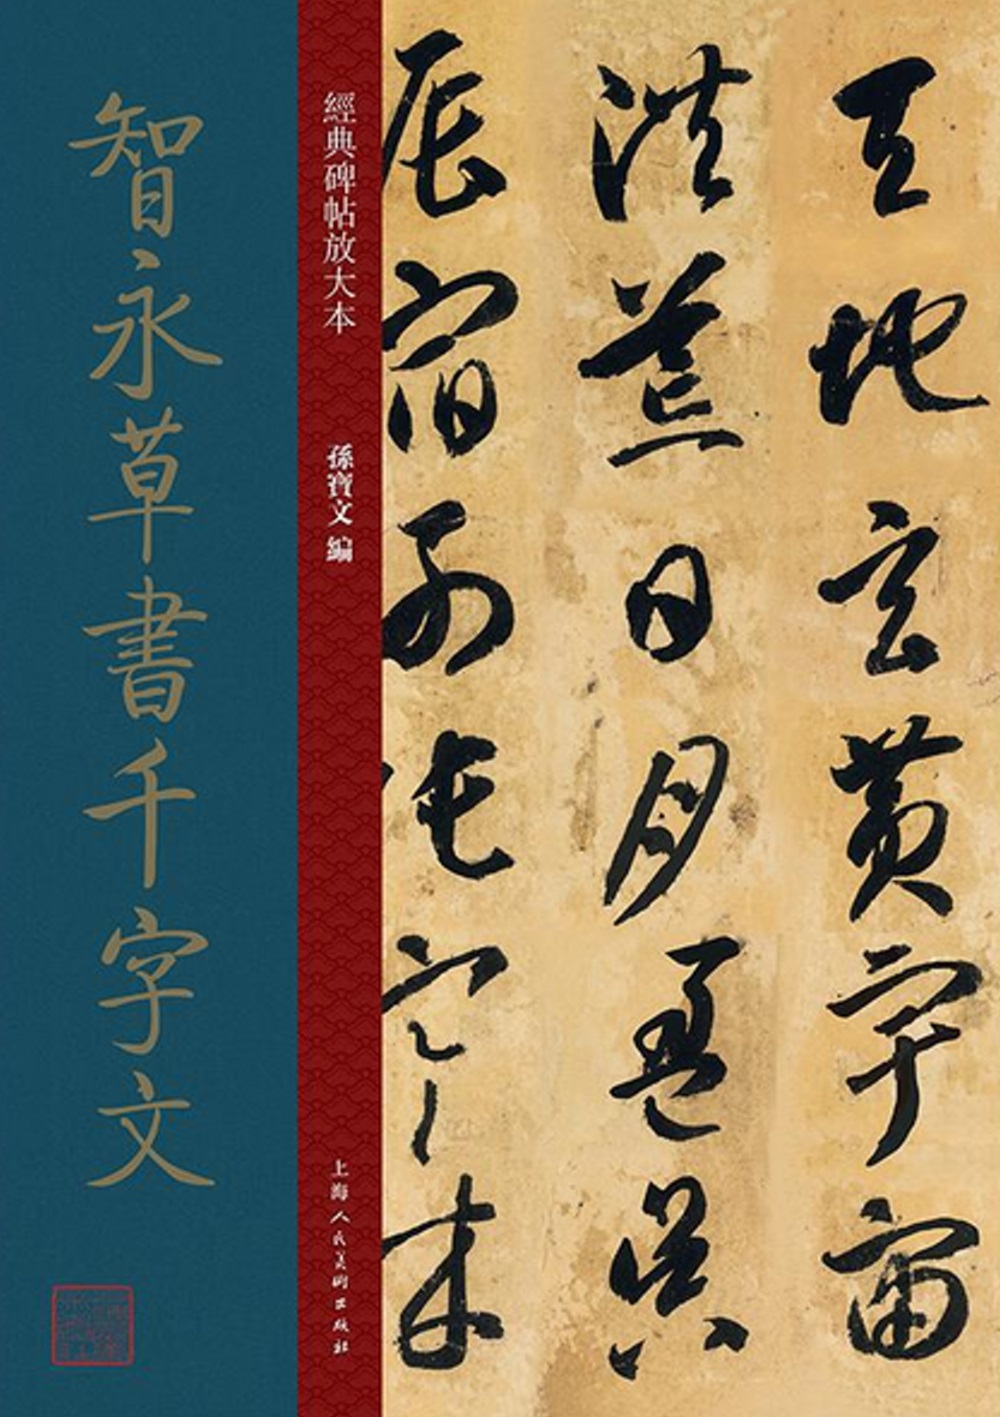 智永草書千字文
經典碑帖放大本
孫寶文 編
上海人民美術出版社
天地玄黃宇宙
洪荒日月盈昃
辰宿列張寒來